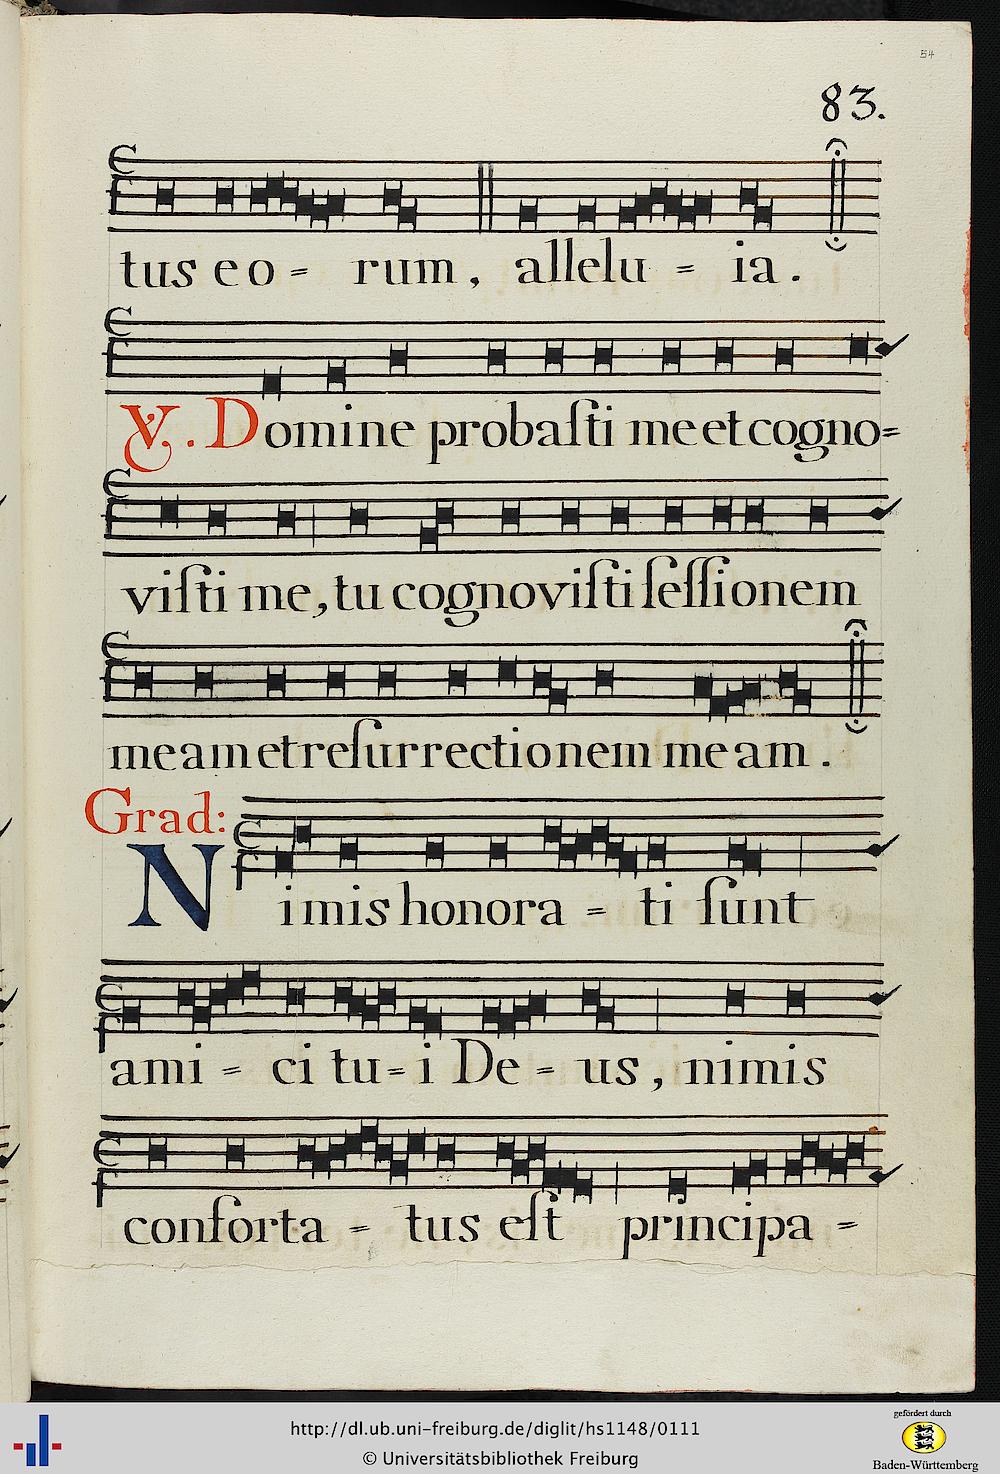 54
83.
tus eo = rum, allelu = ia.
V. Domine probaſti me et cogno=
viſti me, tu cognoviſti ſeſſionem
meam et reſurrectionem meam.
Grad:
Nimis honora = ti ſunt
ami = ci tu = i De = us, nimis
conforta = tus eſt principa =
http://dl.ub.uni-freiburg.de/diglit/hs1148/0111
© Universitätsbibliothek Freiburg
gefördert durch
Baden-Württemberg